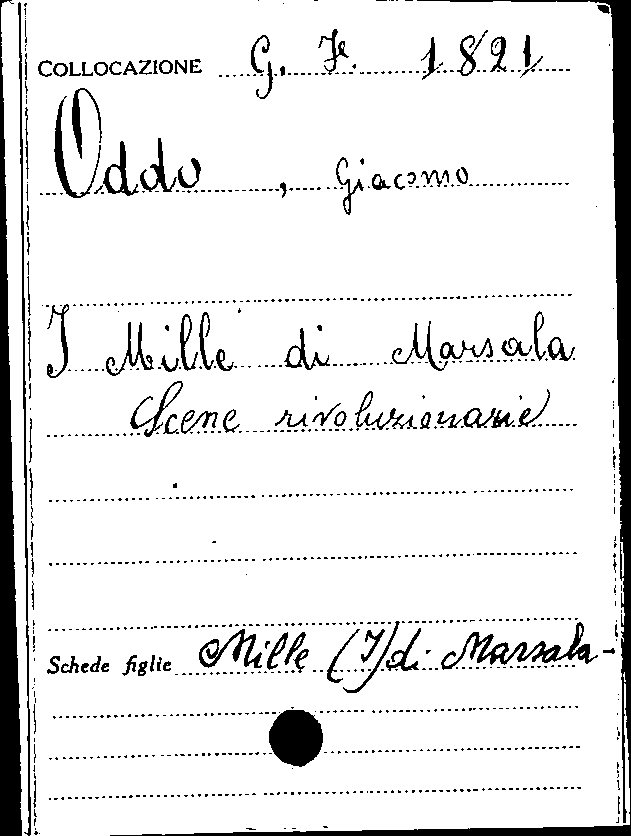 COLLOCAZIONE G. F. 1821
Oddo, Giacomo
I Mille di Marsala
Scene rivoluzionarie
Schede figlie Mille (I) di Marsala-